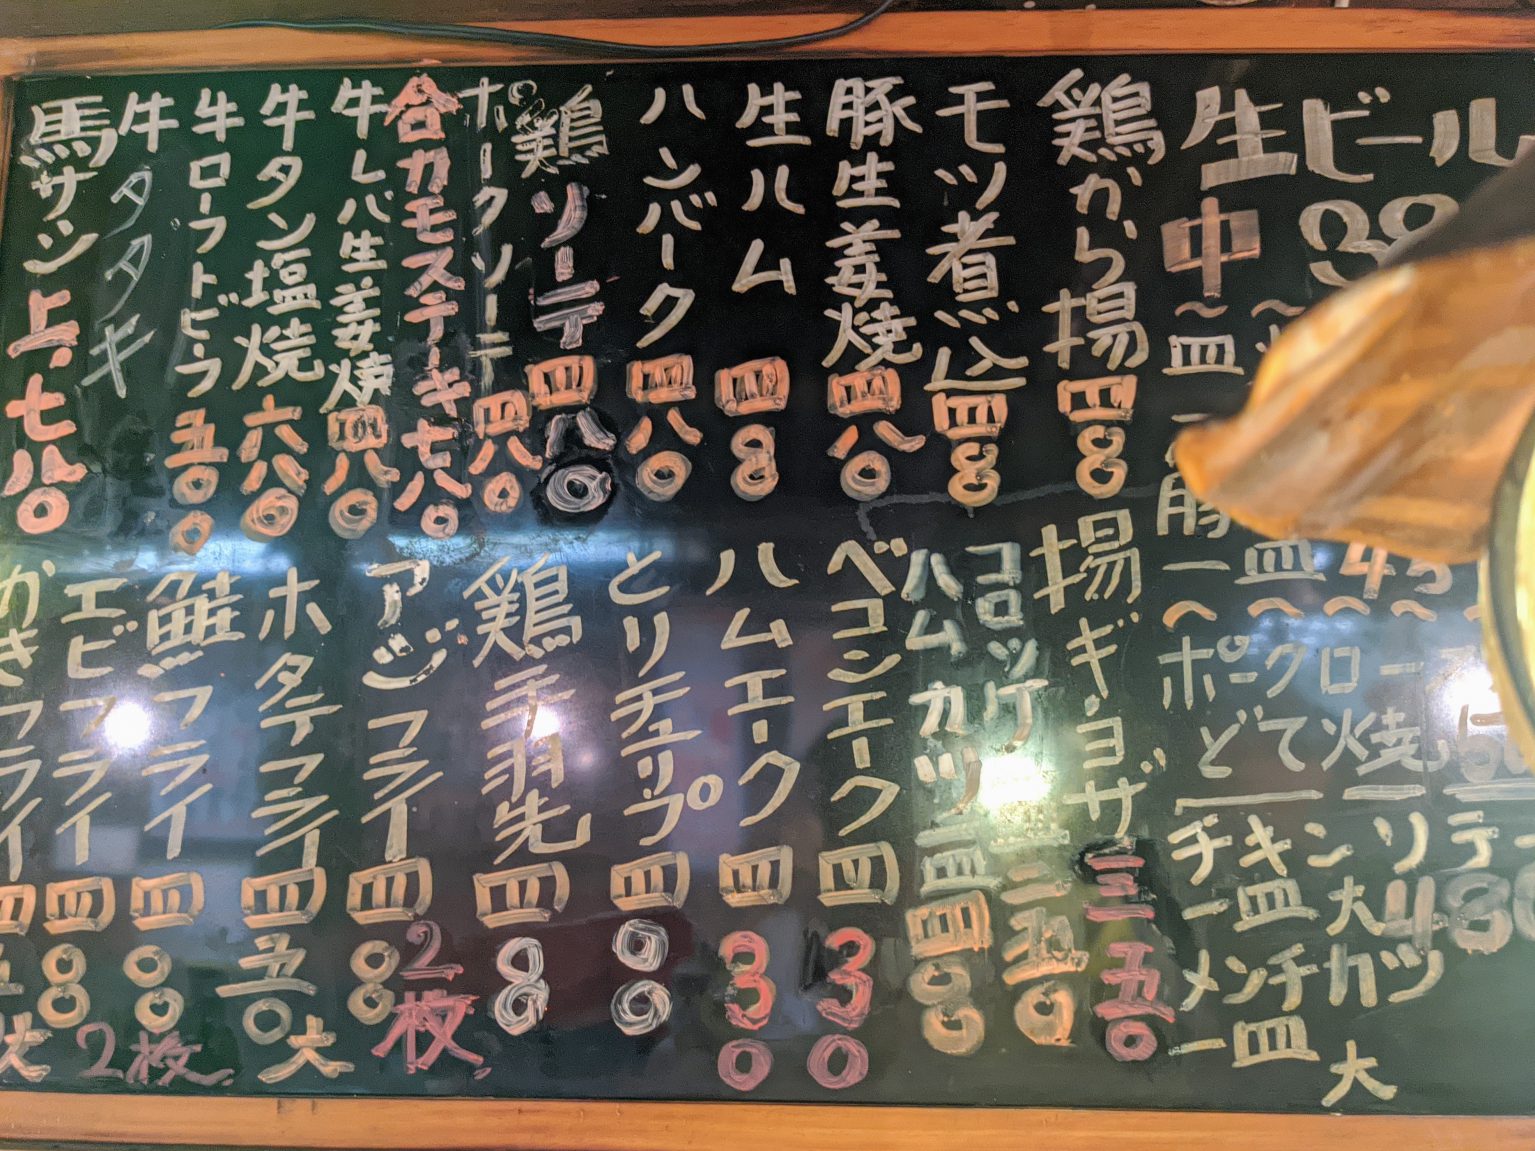 生ビール
中 38
一皿
豚
一皿 45
ポークロー
どて焼
チキンソテー
一皿 大 480
メンチカツ
一皿 大
鶏から揚 四八〇
モツ煮込 四八〇
豚生姜焼 四八〇
生ハム 四八〇
ハンバーグ 四八〇
鶏ソーテ 四八〇
ポークソーテ 四八〇
合カモステーキ 七八〇
牛レバ生姜焼 四八〇
牛タン塩焼 六八〇
牛ローフトビーフ 五〇〇
牛タタキ
馬サシ 上.七八〇
揚ギョウザ 三五〇
コロッケ 三五〇
ハムカツ 四〇〇
ベーコンエーク 四30
ハムエーク 四30
とりチュリップ 四00
鶏手羽先 四80
アジフライ 四〇〇 2枚
ホタテフライ 四五〇 大
鮭フライ 四〇〇 2枚
エビフライ 四〇〇
かきフライ 四五 大